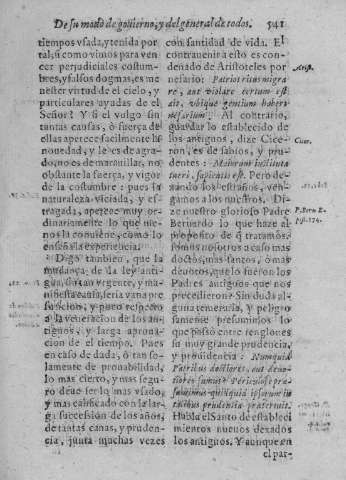 De su modo de govierno, y del general de todos. 541
tiempos vsada, y tenida por
tal; si como vimos para ven
cer perjudiciales costum-
bres, y falsos dogmas, es me
nester virtud de el cielo, y
particulares ayudas de el
Señor? Y si el vulgo sin
tantas causas, ò fuerça de
ellas apetece facilmente la
nouedad, y le es de agra-
do, no es de maravillar, no
obstante la fuerça, y vigor
de la costumbre: pues la
naturaleza viciada, y es-
tragada, apetece muy or-
dinariamente lo que me-
nos la conviene, como lo
enseña la experiencia.
Digo tambien, que la
mudança de la ley anti-
gua, sin tan vrgente, y ma-
nifiesta causa, seria vana pre
suncion, y poca respecto
à la veneracion de los an-
tiguos, y larga aproua-
cion de el tiempo. Pues
en caso de dada, ò tan so-
lamente de prouabilidad,
lo mas cierto, y mas segu-
ro deue ser lo mas vsado,
y mas calificado con la lar-
ga succession de los años,
de tantas canas, y pruden-
cia, junta muchas vezes
con santidad de vida. El
contrauenir a esto es con-
denado de Aristoteles por
nefario: Patrios ritus migra
re, aut violare certum est
ait, vbique gentium haberi
nefarium. Al contrario,
guardar lo establecido de
los antiguos, dize Cice-
ron, es de sabios, y pru-
dentes: Maiorum instituta
tueri, sapientis est. Pero de-
xando los estraños, ven-
gamos a los nuestros. Di-
ze nuestro glorioso Padre
Bernardo lo que haze al
proposito de q̃ tratamos.
Somos nosotros acaso mas
doctos, mas santos, ò mas
deuotos, que lo fueron los
Padres antiguos que nos
precedieron? Sin duda al-
guna temeraria, y peligro
samente presumimos lo
que passò entre renglones
su muy grande prudencia,
y prouidencia: Numquid
Patribus doctiores, aut deuo-
tiores sumus? Periculose præ-
sumimus quidquid ipsorum in
talibus prudentia præteriuit.
Habla el Santo de estableci
mientos nueuos dexados
los antiguos. Y aunque en
el par-
Arist.
Cicer.
P. Bern. E-
pist. 174.